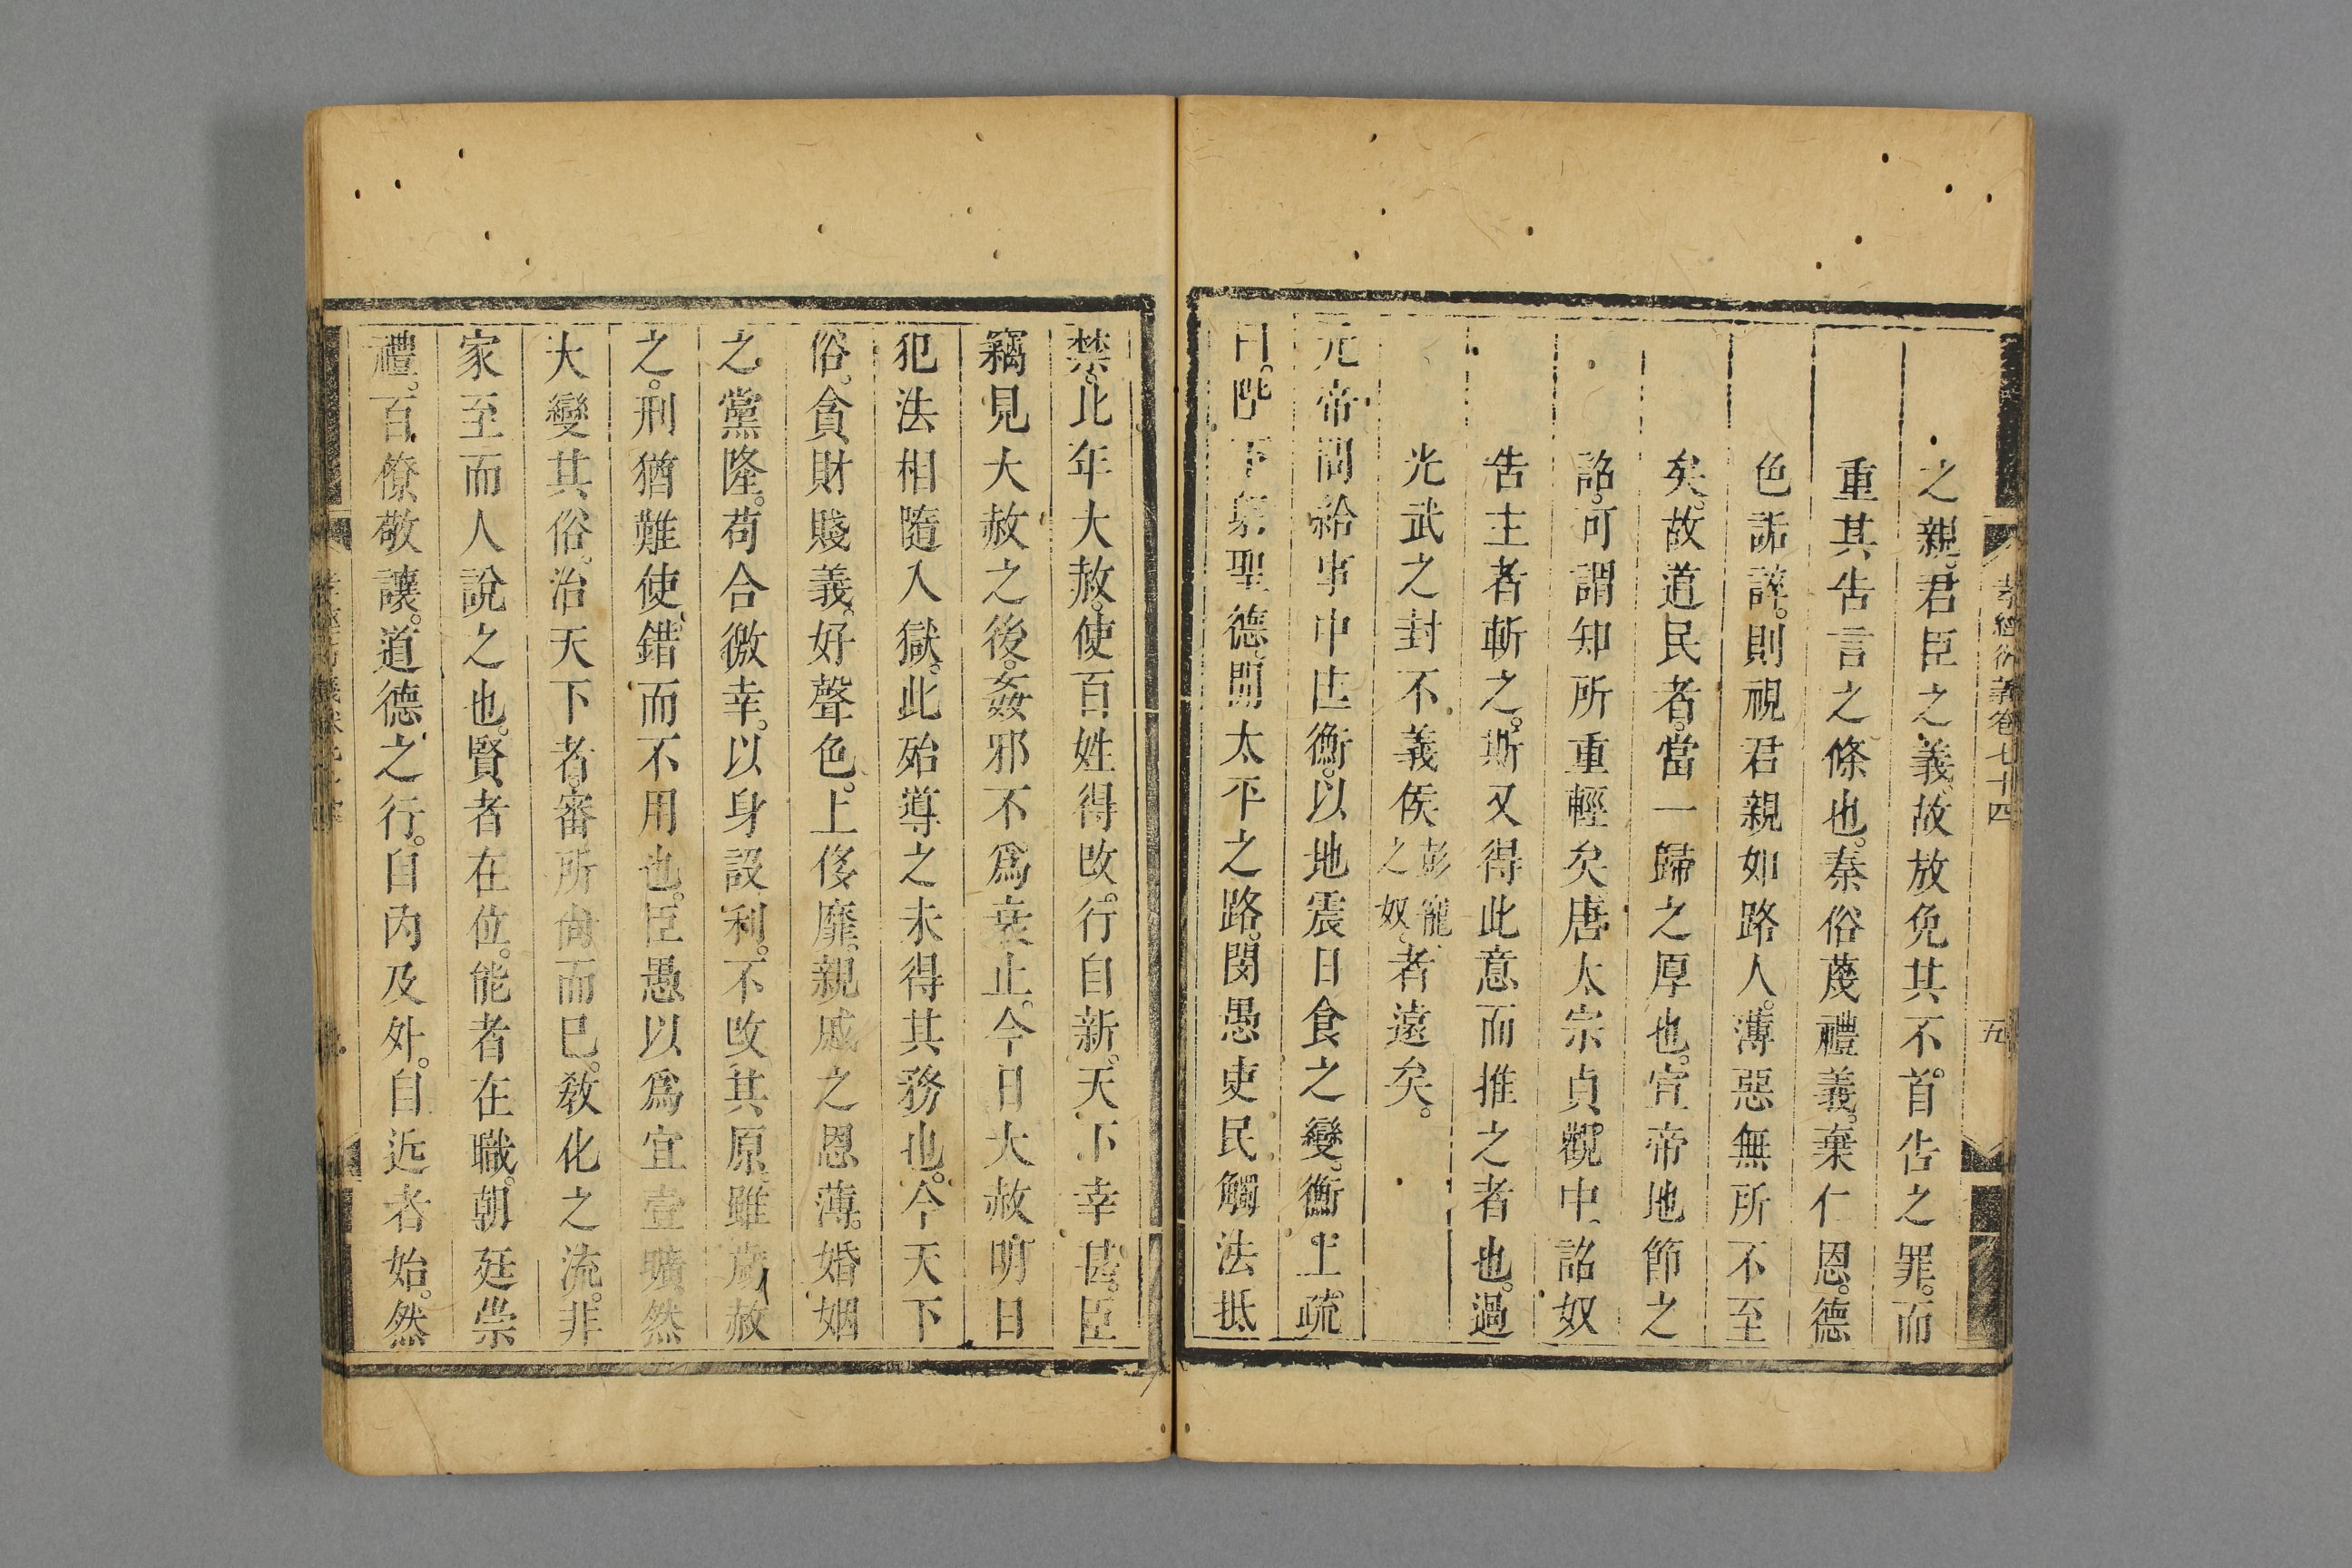 孝經衍義卷七十四
五
之親君臣之義故放免其不首告之罪。而
重其告言之條也。秦俗蔑禮義。棄仁恩。德
色詬誶。則視君親如路人。薄惡無所不至
矣。故道民者。當一歸之厚也。宣帝地節之
詔。可謂知所重輕矣。唐太宗貞觀中。詔奴
告主者斬之。斯又得此意而推之者也。過
光武之封不義侯彭寵之奴。者遠矣。
元帝問給事中匡衡。以地震日食之變。衡上疏
曰。陛下躬聖德。開太平之路。閔愚吏民觸法抵
禁。比年大赦。使百姓得改。行自新。天下幸甚。臣
竊見大赦之後。姦邪不爲衰止。今日大赦。明日
犯法。相隨入獄。此殆導之未得其務也。今天下
俗。貪財賤義。好聲色。上侈靡。親戚之恩薄。婚姻
之黨隆。苟合徼幸。以身設利。不改其原。雖歲赦
之。刑猶難使錯而不用也。臣愚以爲宜壹曠然
大變其俗。治天下者。審所尚而已。教化之流。非
家至而人說之也。賢者在位。能者在職。朝廷崇
禮。百僚敬讓。道德之行。自內及外。自近者始。然